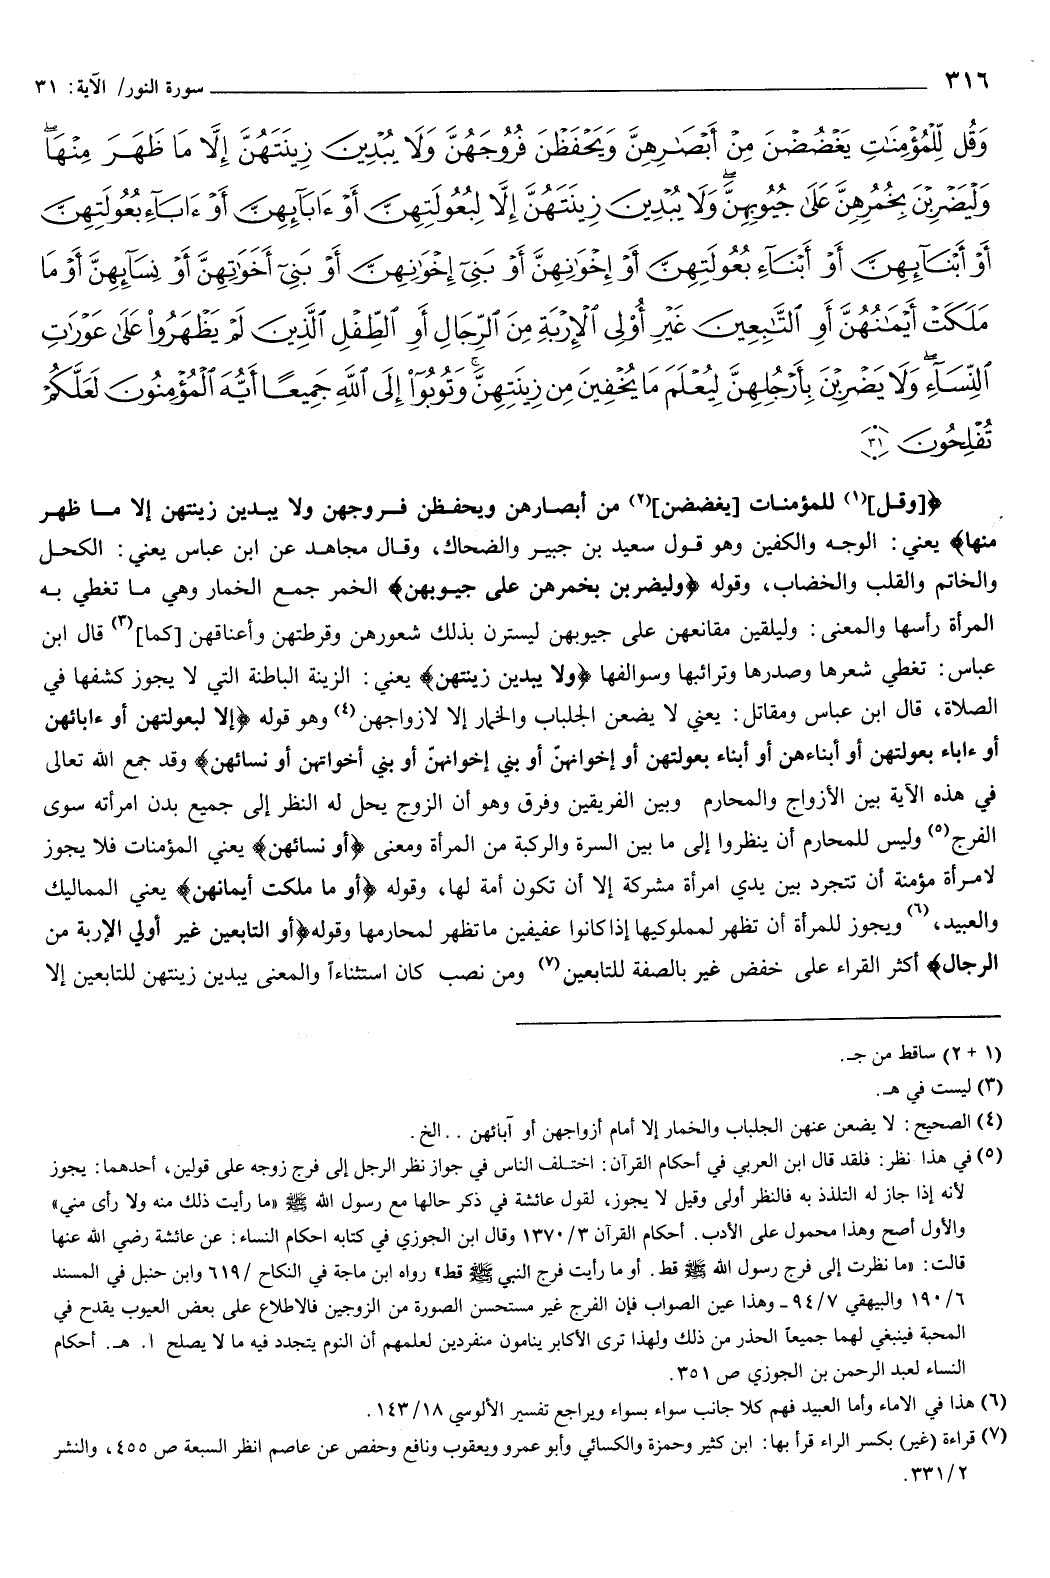 ٣١٦ سورة النور/ الآية: ٣١
وَقُل لِّلْمُؤْمِنَٰتِ يَغْضُضْنَ مِنْ أَبْصَٰرِهِنَّ وَيَحْفَظْنَ فُرُوجَهُنَّ وَلَا يُبْدِينَ زِينَتَهُنَّ إِلَّا مَا ظَهَرَ مِنْهَاۖ
وَلْيَضْرِبْنَ بِخُمُرِهِنَّ عَلَىٰ جُيُوبِهِنَّۖ وَلَا يُبْدِينَ زِينَتَهُنَّ إِلَّا لِبُعُولَتِهِنَّ أَوْ ءَابَآئِهِنَّ أَوْ ءَابَآءِ بُعُولَتِهِنَّ
أَوْ أَبْنَآئِهِنَّ أَوْ أَبْنَآءِ بُعُولَتِهِنَّ أَوْ إِخْوَٰنِهِنَّ أَوْ بَنِىٓ إِخْوَٰنِهِنَّ أَوْ بَنِىٓ أَخَوَٰتِهِنَّ أَوْ نِسَآئِهِنَّ أَوْ مَا
مَلَكَتْ أَيْمَٰنُهُنَّ أَوِ ٱلتَّٰبِعِينَ غَيْرِ أُو۟لِى ٱلْإِرْبَةِ مِنَ ٱلرِّجَالِ أَوِ ٱلطِّفْلِ ٱلَّذِينَ لَمْ يَظْهَرُوا۟ عَلَىٰ عَوْرَٰتِ
ٱلنِّسَآءِۖ وَلَا يَضْرِبْنَ بِأَرْجُلِهِنَّ لِيُعْلَمَ مَا يُخْفِينَ مِن زِينَتِهِنَّۚ وَتُوبُوٓا۟ إِلَى ٱللَّهِ جَمِيعًا أَيُّهَ ٱلْمُؤْمِنُونَ لَعَلَّكُمْ
تُفْلِحُونَ ٣١
﴿[وقل](١) للمؤمنات [يغضضن](٢) من أبصارهن ويحفظن فروجهن ولا يبدين زينتهن إلا ما ظهر
منها﴾ يعني: الوجه والكفين وهو قول سعيد بن جبير والضحاك، وقال مجاهد عن ابن عباس يعني: الكحل
والخاتم والقلب والخضاب، وقوله ﴿وليضربن بخمرهن على جيوبهن﴾ الخمر جمع الخمار وهي ما تغطي به
المرأة رأسها والمعنى: وليلقين مقانعهن على جيوبهن ليسترن بذلك شعورهن وقرطتهن وأعناقهن [كما](٣) قال ابن
عباس: تغطي شعرها وصدرها وترائبها وسوالفها ﴿ولا يبدين زينتهن﴾ يعني: الزينة الباطنة التي لا يجوز كشفها في
الصلاة، قال ابن عباس ومقاتل: يعني لا يضعن الجلباب والخمار إلا لازواجهن(٤) وهو قوله ﴿إلا لبعولتهن أو ءابائهن
أو ءاباء بعولتهن أو أبناءهن أو أبناء بعولتهن أو إخوانهنّ أو بني إخوانهنّ أو بني أخواتهن أو نسائهن﴾ وقد جمع الله تعالى
في هذه الآية بين الأزواج والمحارم وبين الفريقين وفرق وهو أن الزوج يحل له النظر إلى جميع بدن امرأته سوى
الفرج(٥) وليس للمحارم أن ينظروا إلى ما بين السرة والركبة من المرأة ومعنى ﴿أو نسائهن﴾ يعني المؤمنات فلا يجوز
لامرأة مؤمنة أن تتجرد بين يدي امرأة مشركة إلا أن تكون أمة لها، وقوله ﴿أو ما ملكت أيمانهن﴾ يعني المماليك
والعبيد،(٦) ويجوز للمرأة أن تظهر لمملوكيها إذا كانوا عفيفين ما تظهر لمحارمها وقوله ﴿أو التابعين غير أولي الإربة من
الرجال﴾ أكثر القراء على خفض غير بالصفة للتابعين(٧) ومن نصب كان استثناءاً والمعنى يبدين زينتهن للتابعين إلا
(١ + ٢) ساقط من جـ.
(٣) ليست في هـ.
(٤) الصحيح: لا يضعن عنهن الجلباب والخمار إلا أمام أزواجهن أو آبائهن . . الخ.
(٥) في هذا نظر: فلقد قال ابن العربي في أحكام القرآن: اختلف الناس في جواز نظر الرجل إلى فرج زوجه على قولين، أحدهما: يجوز
لأنه إذا جاز له التلذذ به فالنظر أولى وقيل لا يجوز، لقول عائشة في ذكر حالها مع رسول الله ﷺ «ما رأيت ذلك منه ولا رأى مني»
والأول أصح وهذا محمول على الأدب. أحكام القرآن ٣/١٣٧٠ وقال ابن الجوزي في كتابه احكام النساء: عن عائشة رضي الله عنها
قالت: «ما نظرت إلى فرج رسول الله ﷺ قط. أو ما رأيت فرج النبي ﷺ قط» رواه ابن ماجة في النكاح /٦١٩ وابن حنبل في المسند
٦/١٩٠ والبيهقي ٧/٩٤ ـ وهذا عين الصواب فإن الفرج غير مستحسن الصورة من الزوجين فالاطلاع على بعض العيوب يقدح في
المحبة فينبغي لهما جميعاً الحذر من ذلك ولهذا ترى الأكابر ينامون منفردين لعلمهم أن النوم يتجدد فيه ما لا يصلح ا. هـ. أحكام
النساء لعبد الرحمن بن الجوزي ص ٣٥١.
(٦) هذا في الاماء وأما العبيد فهم كلا جانب سواء بسواء ويراجع تفسير الألوسي ١٨/١٤٣.
(٧) قراءة (غير) بكسر الراء قرأ بها: ابن كثير وحمزة والكسائي وأبو عمرو ويعقوب ونافع وحفص عن عاصم انظر السبعة ص ٤٥٥، والنشر
٢/٣٣١.